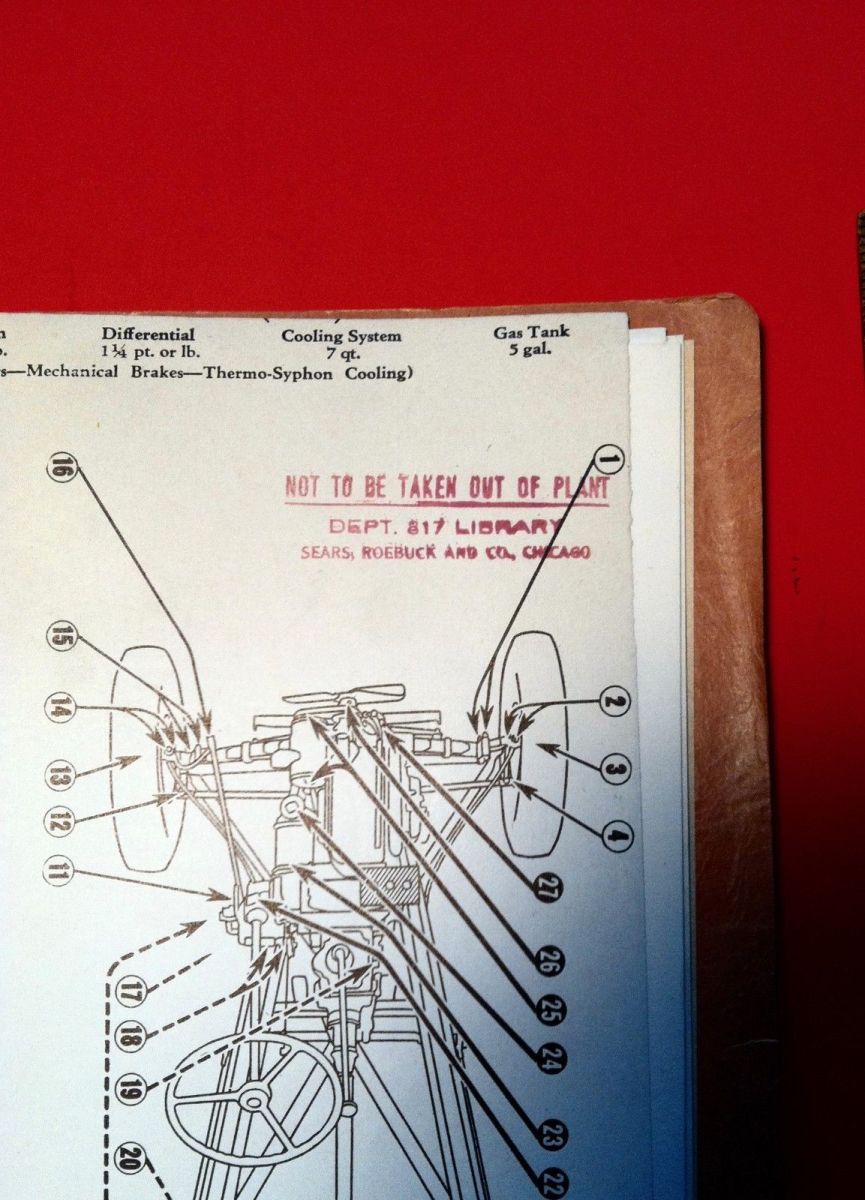 Differential Cooling System Gas Tank
1¼ pt. or lb. 7 qt. 5 gal.
—Mechanical Brakes—Thermo-Syphon Cooling)
16
1
NOT TO BE TAKEN OUT OF PLANT
DEPT. 817 LIBRARY
SEARS, ROEBUCK AND CO., CHICAGO
15
14
2
13
3
12
4
11
27
26
17
25
18
24
19
23
20
22